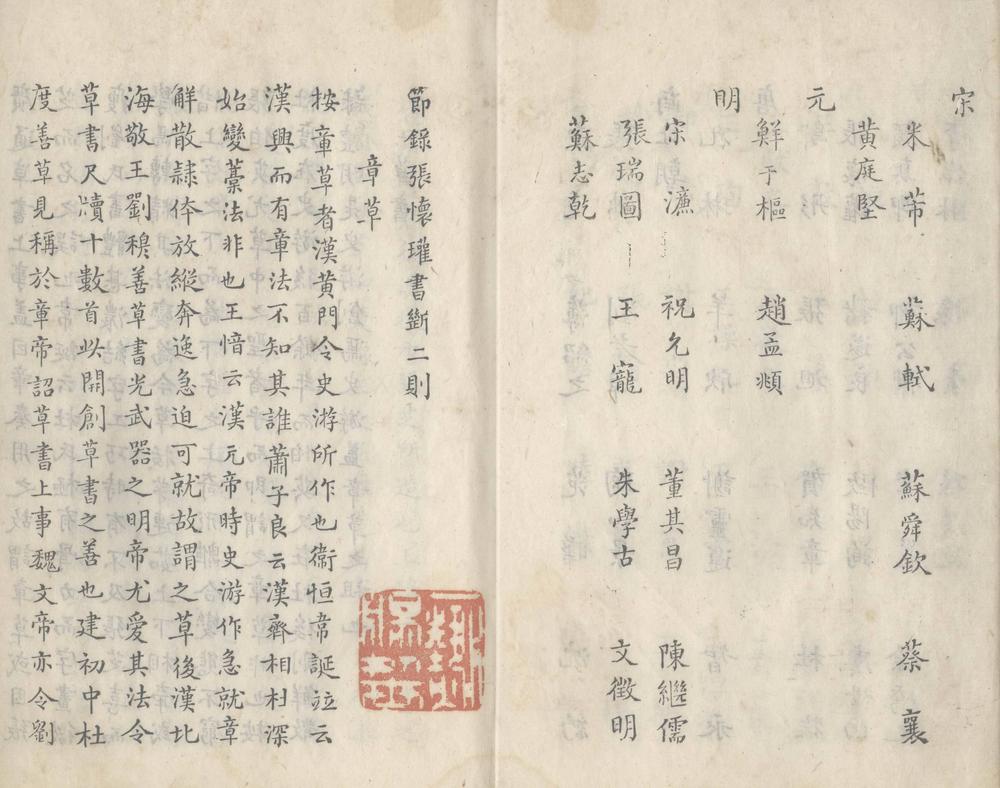 宋
米芾 蘇軾 蘇舜欽 蔡襄
黃庭堅
元
鮮于樞 趙孟頫
明
宋濂 祝允明 董其昌 陳繼儒
張瑞圖 王寵 朱學古 文徵明
蘇志乾
節錄張懷瓘書斷二則
章草
按章草者漢黃門令史游所作也衞恒韋誕竝云
漢興而有章法不知其誰蕭子良云漢齊相杜深
始變藁法非也王愔云漢元帝時史游作急就章
解散隷体放縱奔逸急迫可就故謂之草後漢北
海敬王劉穆善草書光武器之明帝尤愛其法令
草書尺牘十數首此開創草書之善也建初中杜
度善草見稱於章帝詔草書上事魏文帝亦令劉